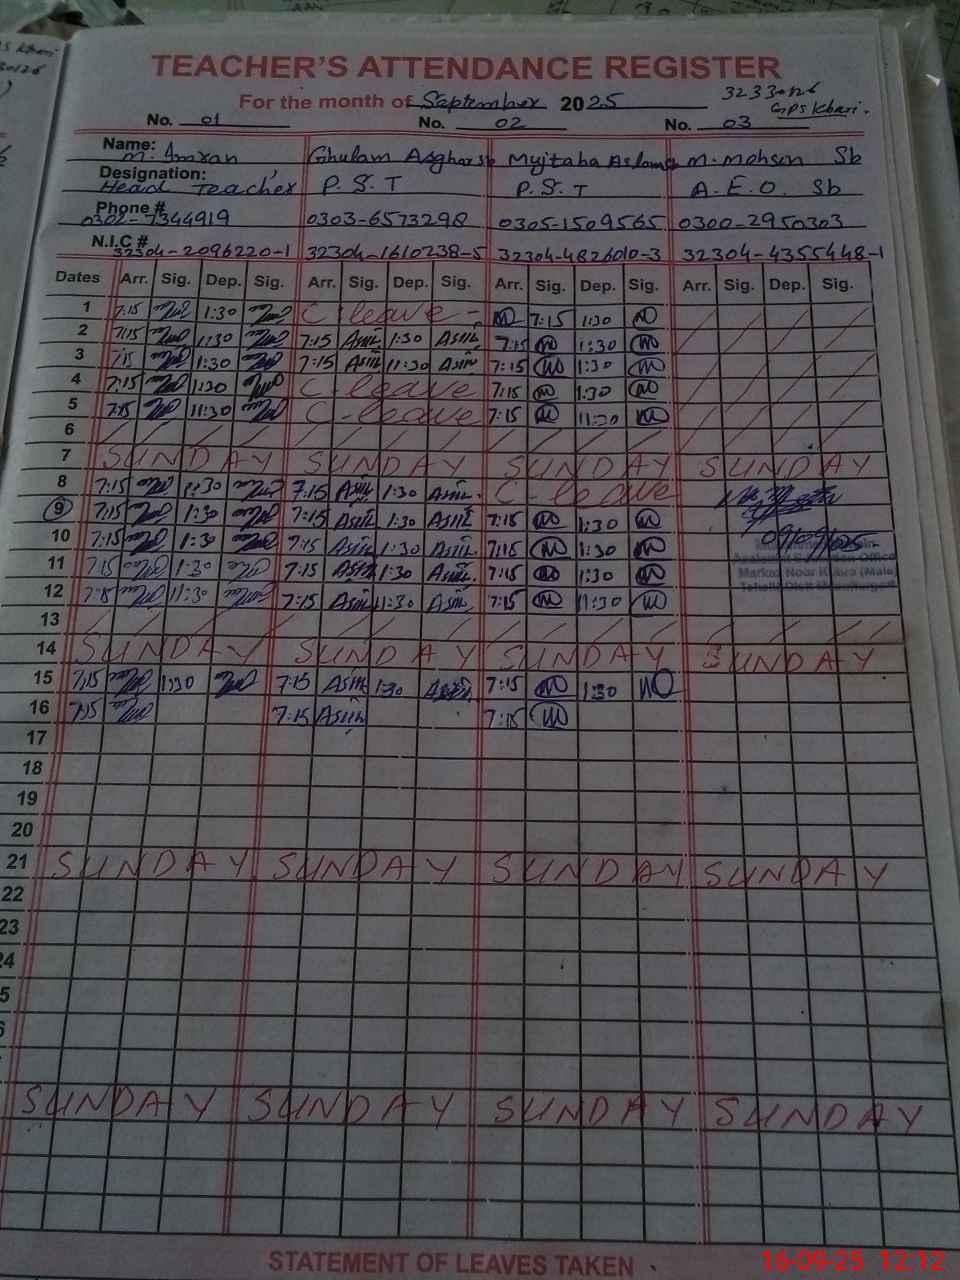 TEACHER'S ATTENDANCE REGISTER
For the month of September 2025 32330126
GPS Khari.
No. 01 No. 02 No. 03
Name: M. Imran Ghulam Asghar Sb Mujtaba Aslam M. Mohsin Sb
Designation: Head Teacher P.S.T P.S.T A.E.O. Sb
Phone # 0302-7344919 0303-6573298 0305-1509565 0300-2950303
N.I.C # 32304-2096220-1 32304-1610238-5 32304-4826010-3 32304-4355448-1
Dates Arr. Sig. Dep. Sig. Arr. Sig. Dep. Sig. Arr. Sig. Dep. Sig. Arr. Sig. Dep. Sig.
1 7:15 1:30 C leave - M 7:15 1:30 M
2 7:15 1:30 7:15 Asim 1:30 Asim 7:15 M 1:30 M
3 7:15 1:30 7:15 Asim 11:30 Asim 7:15 M 1:30 M
4 7:15 1:30 C-leave 7:15 M 1:30 M
5 7:15 11:30 C-leave 7:15 M 11:30 M
6
7 SUNDAY SUNDAY SUNDAY SUNDAY
8 7:15 1:30 7:15 Asim 1:30 Asim. C-leave
9 7:15 1:30 7:15 Asim 1:30 Asim 7:15 M 1:30 M
10 7:15 1:30 7:15 Asim 1:30 Asim 7:15 M 1:30 M 09/09/025
11 7:15 1:30 7:15 Asim 1:30 Asim 7:15 M 1:30 M
Markaz Noor Kubra (Male)
12 7:15 11:30 7:15 Asim 11:30 Asim 7:15 M 11:30 M
13
14 SUNDAY SUNDAY SUNDAY SUNDAY
15 7:15 1:30 7:15 Asim 1:30 Asim 7:15 M 1:30 M
16 7:15 7:15 Asim 7:15 M
17
18
19
20
21 SUNDAY SUNDAY SUNDAY SUNDAY
22
23
24
5
6
SUNDAY SUNDAY SUNDAY SUNDAY
STATEMENT OF LEAVES TAKEN
16-09-25 12:12